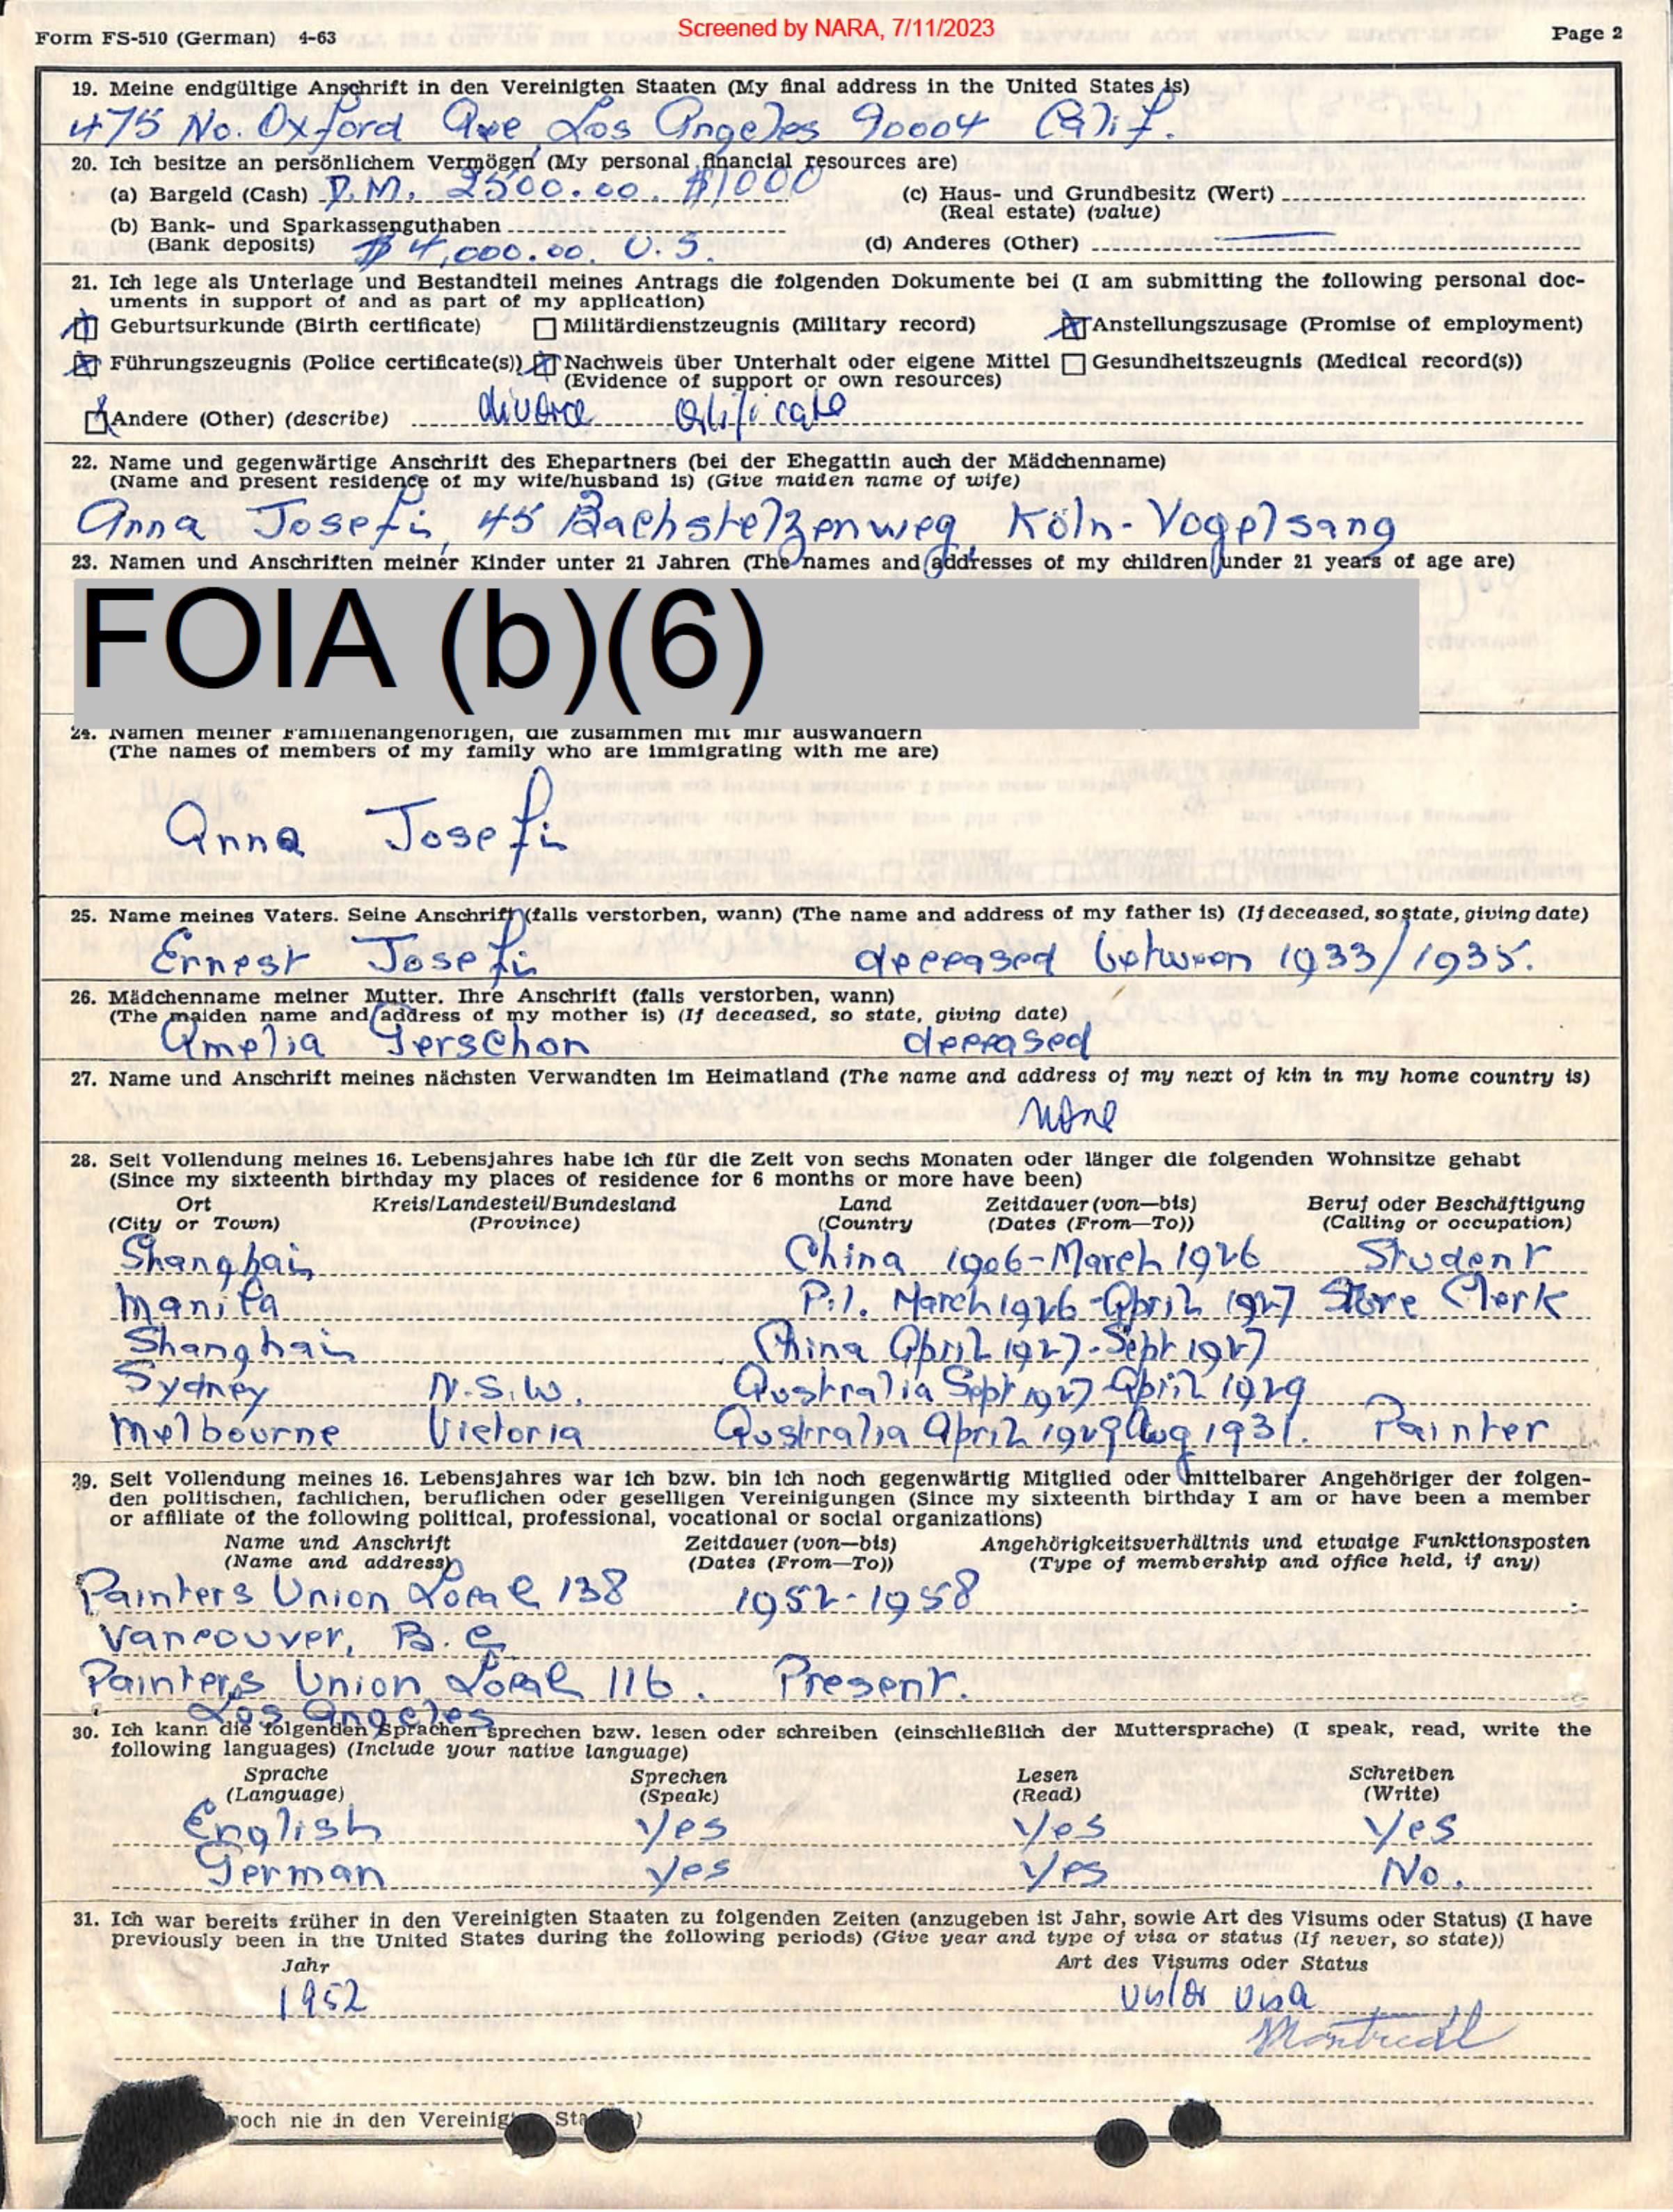 Screened by NARA, 7/11/2023
Form FS-510 (German) 4-63
Page 2
19. Meine endgültige Anschrift in den Vereinigten Staaten (My final address in the United States is)
475 No. Oxford Ave, Los Angeles 90004 Calif.
20. Ich besitze an persönlichem Vermögen (My personal financial resources are)
(a) Bargeld (Cash) D.M. 2500.00. $1000
(c) Haus- und Grundbesitz (Wert)
(Real estate) (value)
(b) Bank- und Sparkassenguthaben
(Bank deposits) $ 4,000.00. U.S.
(d) Anderes (Other)
21. Ich lege als Unterlage und Bestandteil meines Antrags die folgenden Dokumente bei (I am submitting the following personal doc-
uments in support of and as part of my application)
Geburtsurkunde (Birth certificate) Militärdienstzeugnis (Military record) Anstellungszusage (Promise of employment)
Führungszeugnis (Police certificate(s)) Nachweis über Unterhalt oder eigene Mittel Gesundheitszeugnis (Medical record(s))
(Evidence of support or own resources)
Andere (Other) (describe) divorce certificate
22. Name und gegenwärtige Anschrift des Ehepartners (bei der Ehegattin auch der Mädchenname)
(Name and present residence of my wife/husband is) (Give maiden name of wife)
Anna Josefi, 45 Bachstelzenweg, Köln-Vogelsang
23. Namen und Anschriften meiner Kinder unter 21 Jahren (The names and addresses of my children under 21 years of age are)
FOIA (b)(6)
24. Namen meiner Familienangehörigen, die zusammen mit mir auswandern
(The names of members of my family who are immigrating with me are)
Anna Josefi
25. Name meines Vaters. Seine Anschrift (falls verstorben, wann) (The name and address of my father is) (If deceased, so state, giving date)
Ernest Josefi deceased between 1933/1935.
26. Mädchenname meiner Mutter. Ihre Anschrift (falls verstorben, wann)
(The maiden name and address of my mother is) (If deceased, so state, giving date)
Amelia Gerschon deceased
27. Name und Anschrift meines nächsten Verwandten im Heimatland (The name and address of my next of kin in my home country is)
None
28. Seit Vollendung meines 16. Lebensjahres habe ich für die Zeit von sechs Monaten oder länger die folgenden Wohnsitze gehabt
(Since my sixteenth birthday my places of residence for 6 months or more have been)
Ort Kreis/Landesteil/Bundesland Land Zeitdauer (von—bis) Beruf oder Beschäftigung
(City or Town) (Province) (Country (Dates (From—To)) (Calling or occupation)
Shanghai China 1906-March 1926 Student
Manila P.I. March 1926-April 1927 Store Clerk
Shanghai China April 1927-Sept 1927
Sydney N.S.W. Australia Sept 1927-April 1929
Melbourne Victoria Australia April 1929 Aug 1931. Painter
29. Seit Vollendung meines 16. Lebensjahres war ich bzw. bin ich noch gegenwärtig Mitglied oder mittelbarer Angehöriger der folgen-
den politischen, fachlichen, beruflichen oder geselligen Vereinigungen (Since my sixteenth birthday I am or have been a member
or affiliate of the following political, professional, vocational or social organizations)
Name und Anschrift Zeitdauer (von—bis) Angehörigkeitsverhältnis und etwaige Funktionsposten
(Name and address) (Dates (From—To)) (Type of membership and office held, if any)
Painters Union Local 138 1952-1958
Vancouver, B.C.
Painters Union Local 116. Present.
Los Angeles
30. Ich kann die folgenden Sprachen sprechen bzw. lesen oder schreiben (einschließlich der Muttersprache) (I speak, read, write the
following languages) (Include your native language)
Sprache Sprechen Lesen Schreiben
(Language) (Speak) (Read) (Write)
English Yes Yes Yes
German Yes Yes No.
31. Ich war bereits früher in den Vereinigten Staaten zu folgenden Zeiten (anzugeben ist Jahr, sowie Art des Visums oder Status) (I have
previously been in the United States during the following periods) (Give year and type of visa or status (If never, so state))
Jahr Art des Visums oder Status
1952 visitor visa
Montreal
noch nie in den Vereinigten